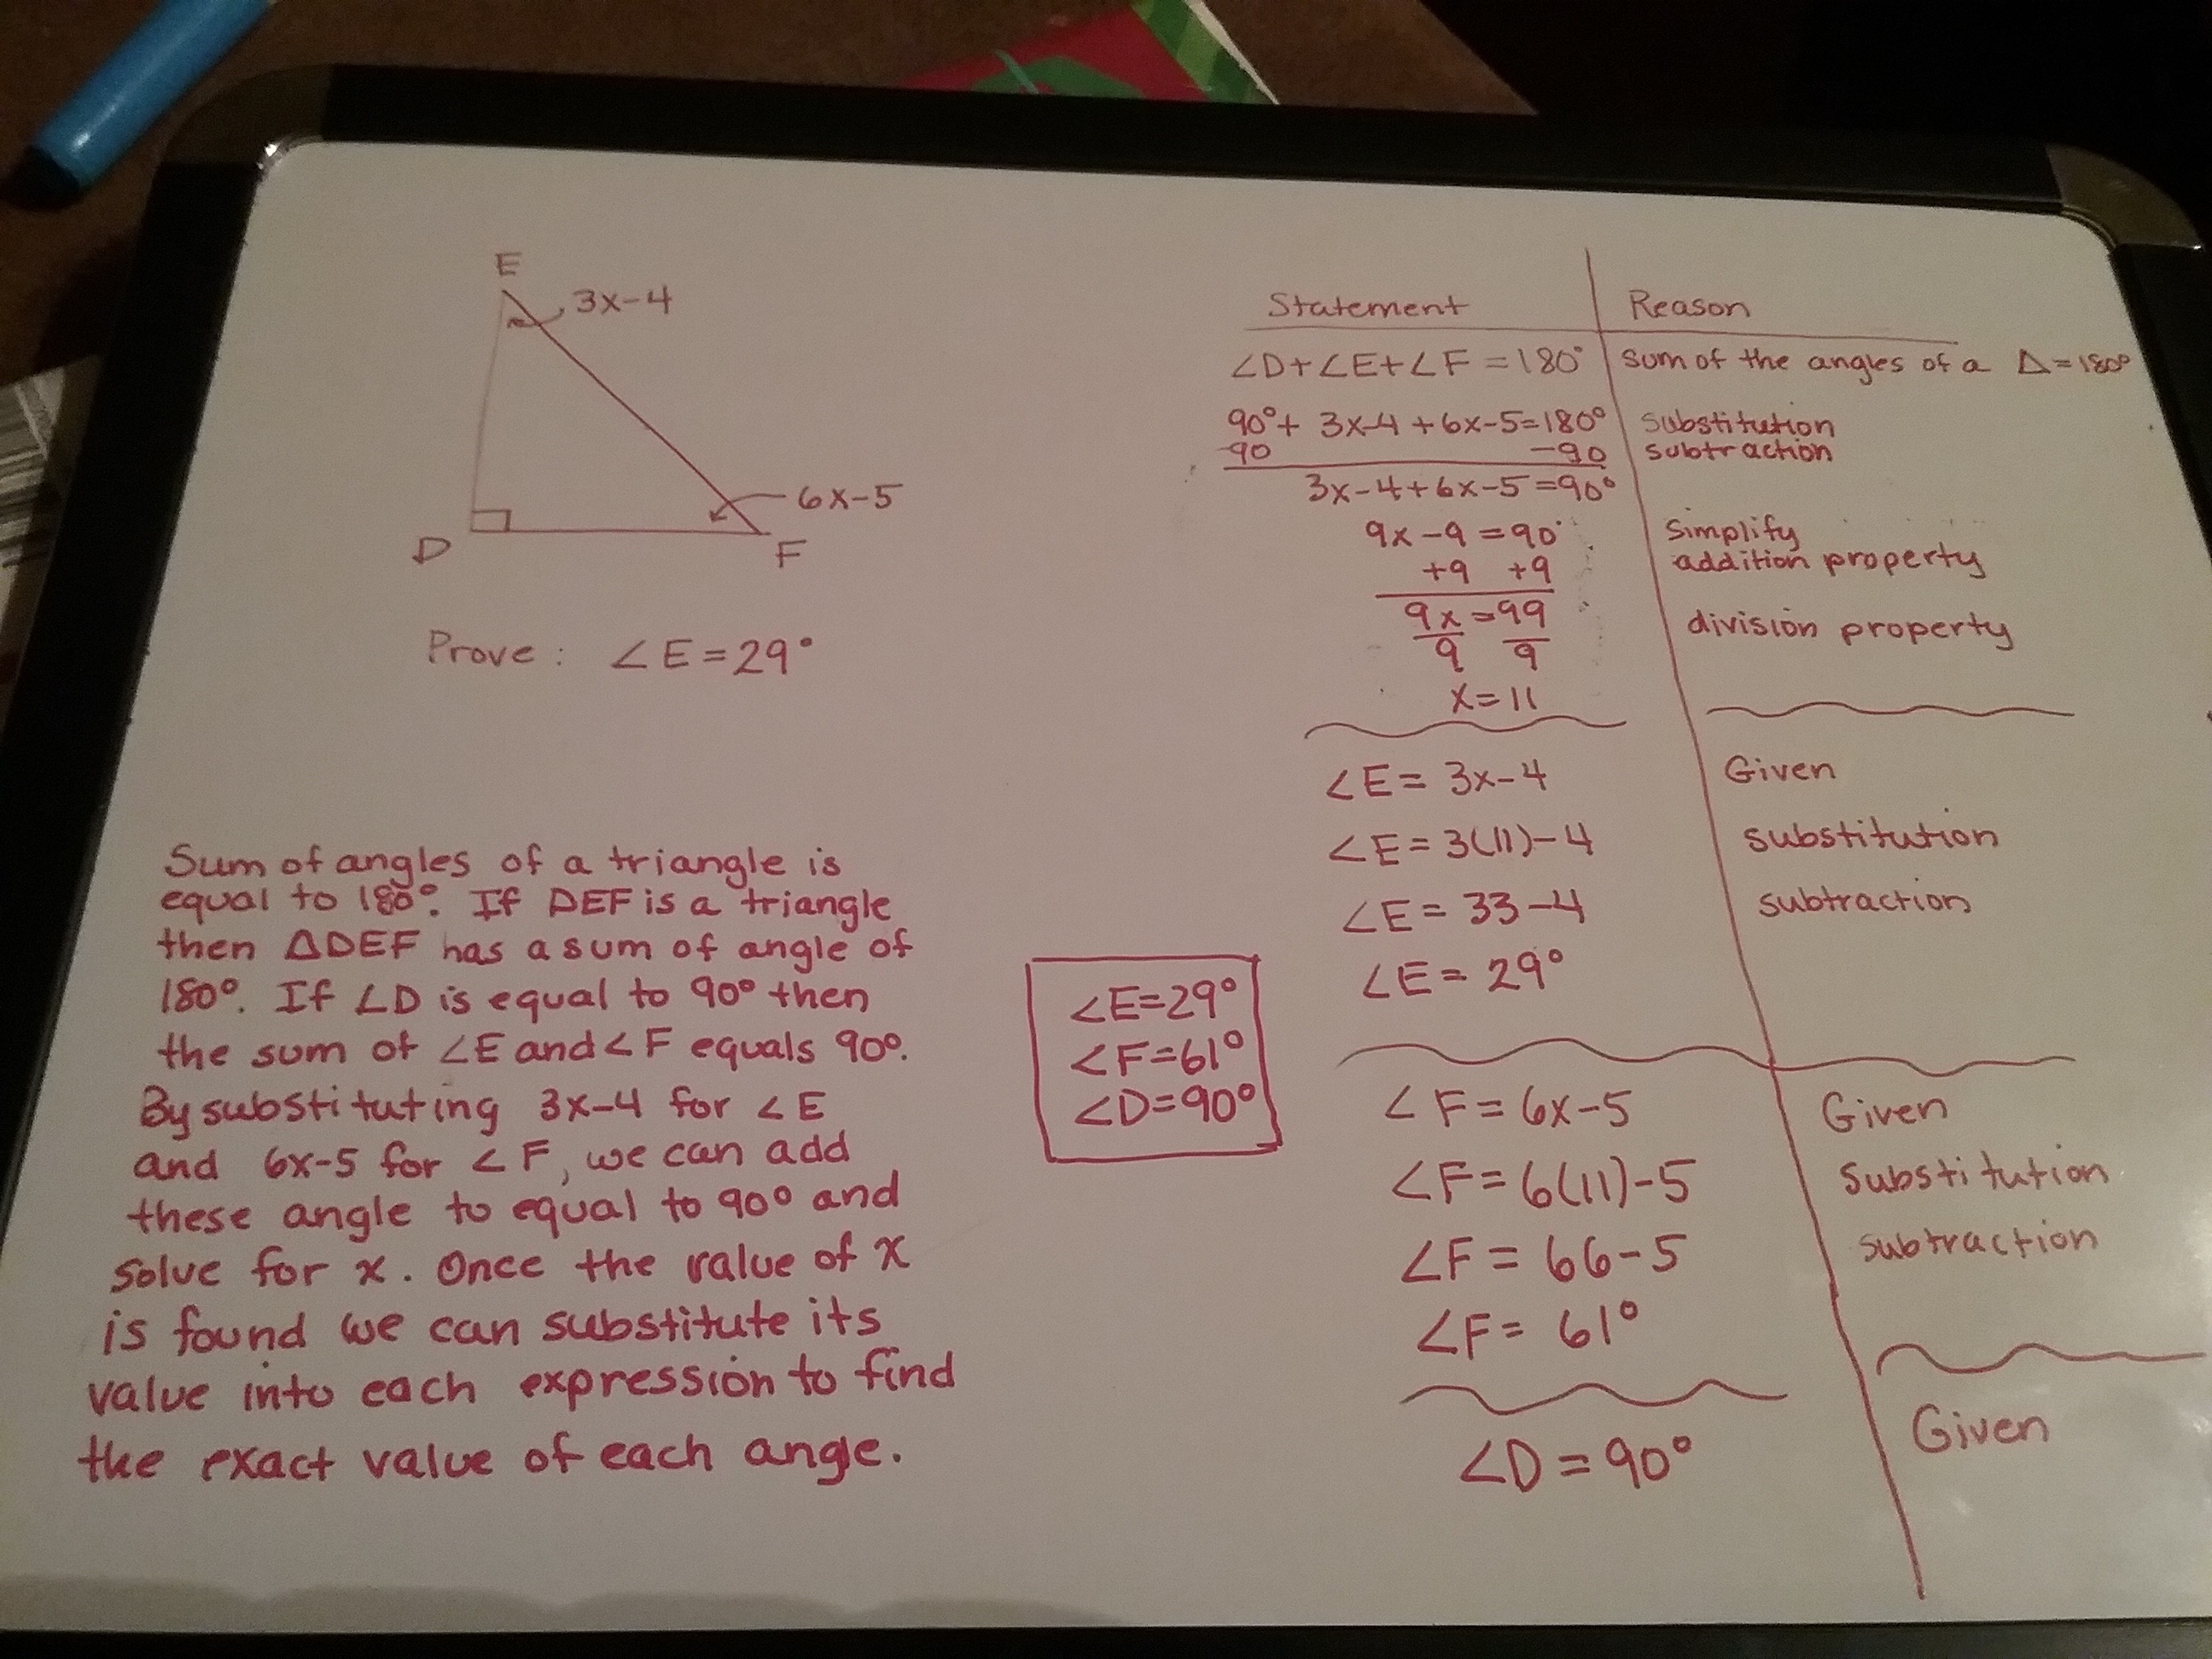 E
3x-4
6x-5
D
F
Prove: ∠E=29°
Sum of angles of a triangle is
equal to 180°. If DEF is a triangle
then △DEF has a sum of angle of
180°. If ∠D is equal to 90° then
the sum of ∠E and ∠F equals 90°.
By substituting 3x-4 for ∠E
and 6x-5 for ∠F, we can add
these angle to equal to 90° and
solve for x. Once the value of x
is found we can substitute its
value into each expression to find
the exact value of each angle.
∠E=29°
∠F=61°
∠D=90°
Statement Reason
∠D+∠E+∠F=180° sum of the angles of a △=180°
90°+ 3x-4+6x-5=180° substitution
-90 -90 subtraction
3x-4+6x-5=90°
9x-9=90° Simplify
+9 +9 addition property
9x=99 division property
9 9
x=11
∠E=3x-4 Given
∠E=3(11)-4 substitution
∠E=33-4 subtraction
∠E=29°
∠F=6x-5 Given
∠F=6(11)-5 Substitution
∠F=66-5 subtraction
∠F=61°
∠D=90° Given